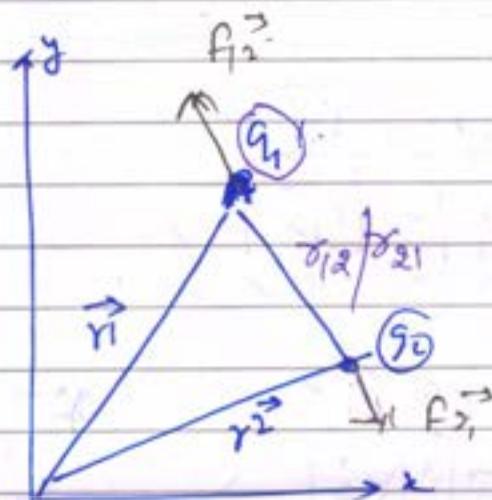 y
F₁₂→
q₁
r₁₂/r₂₁
r₁→
q₂
r₂→
F₂₁→
x